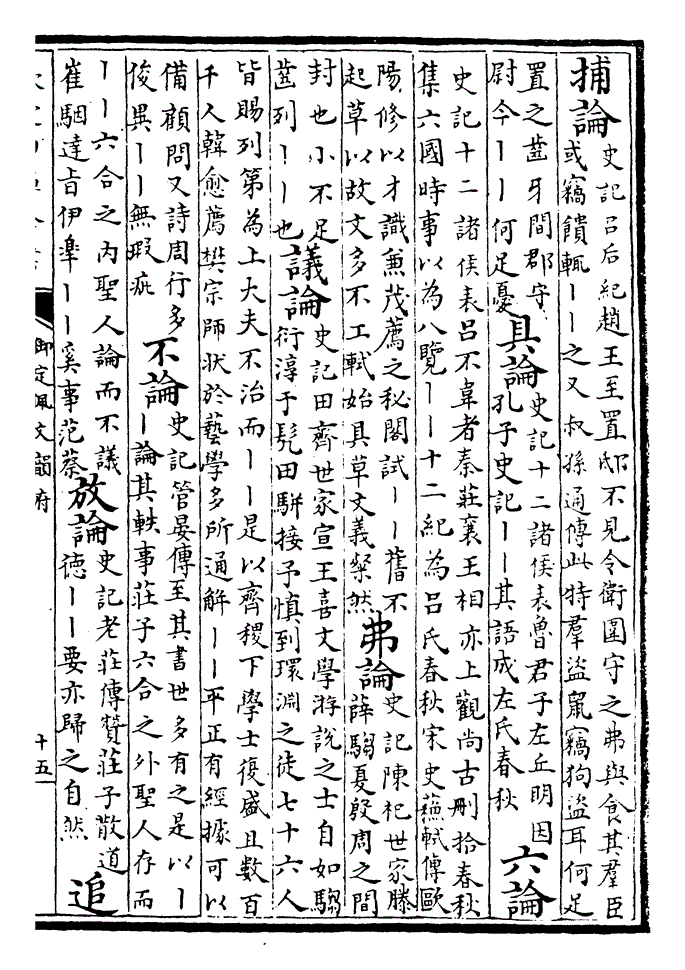 捕論史記呂后紀趙王至置邸不見令衛圍守之弗與食其羣臣
或竊饋輒丨丨之又叔孫通傳此特羣盜鼠竊狗盜耳何足
置之齒牙間郡守
尉今丨丨何足憂
具論史記十二諸侯表魯君子左丘明因
孔子史記丨丨其語成左氏春秋
六論
史記十二諸侯表呂不韋者秦莊襄王相亦上觀尚古刪拾春秋
集六國時事以為八覽丨丨十二紀為呂氏春秋宋史蘇軾傳歐
陽修以才識兼茂薦之秘閣試丨丨舊不
起草以故文多不工軾始具草文義粲然
弗論史記陳杞世家滕
薛騶夏殷周之間
封也小不足
齒列丨丨也
議論史記田齊世家宣王喜文學游說之士自如騶
衍淳于髡田駢接予慎到環淵之徒七十六人
皆賜列第為上大夫不治而丨丨是以齊稷下學士復盛且數百
千人韓愈薦樊宗師狀於藝學多所通解丨丨平正有經據可以
備顧問又詩周行多
俊異丨丨無瑕疵
不論史記管晏傳至其書世多有之是以丨
丨論其軼事莊子六合之外聖人存而
丨丨六合之內聖人論而不議
崔駰達旨伊臯丨丨奚事范蔡
放論史記老莊傳贊莊子散道
德丨丨要亦歸之自然
追
御定佩文韻府
十五